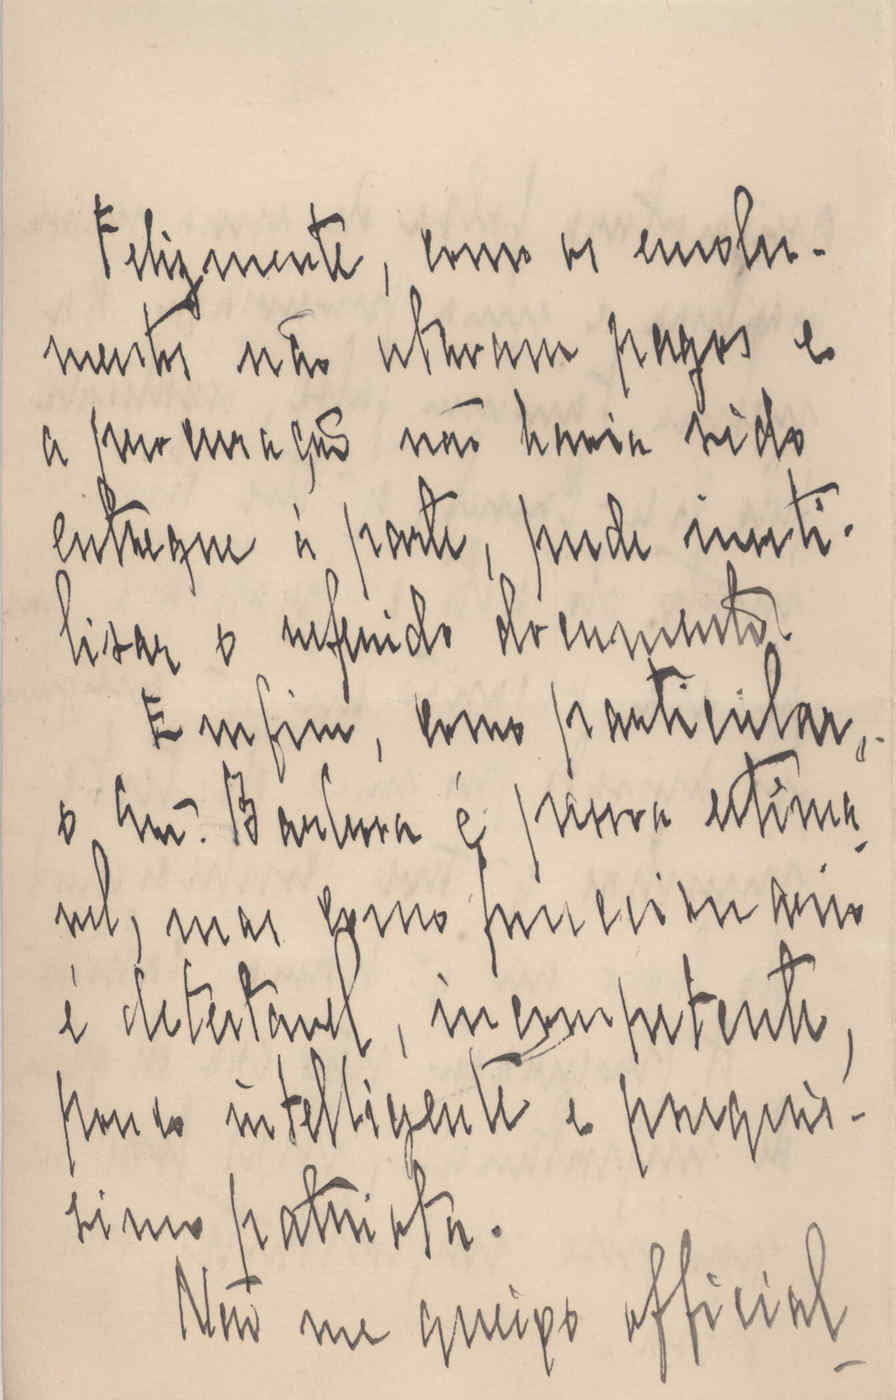 Felizmente, como os emolu-
mentos não estavam pagos e
a procuração não havia sido
entregue á parte, pude inuti-
lisar o referido documento.
Emfim, como particular,
o Snr. Barbosa é pessoa estima-
vel, mas como funccionario
é detestavel, incompetente,
pouco intelligente e
simo patriota.
Não me queixo official-